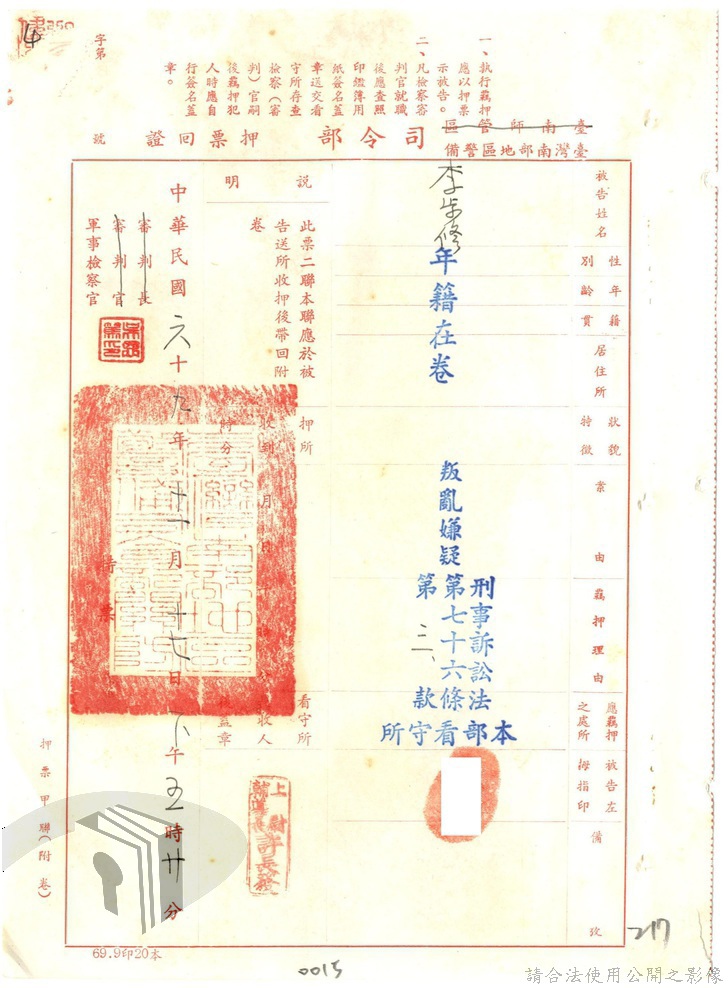 字第
號
一、執行羈押
應以押票
示被告。
二、凡檢察審
判官就職
後應查照
印鑑簿用
紙簽名蓋
章送交看
守所存查
檢察（審
判）官嗣
後羈押犯
人時應自
行簽名蓋
章。
臺南師管區
臺灣南部地區警備
司令部
押票回證
被告姓名
李步修
性別
年齡
籍貫
年籍在卷
居住所
狀貌特徵
案由
叛亂嫌疑
羈押理由
刑事訴訟法
第七十六條
第三、款
應羈押之處所
本部看守所
被告左拇指印
備攷
說明
此票二聯本聯應於被
告送所收押後帶回附
卷
押所
收到 月 日
時 分
看守所
收人
蓋章
上尉
許長發
中華民國六十九年十一月十七日下午五時廿分
審判長
審判官
軍事檢察官
押票甲聯（附卷）
69.9印20本
0015
217
14
請合法使用公開之影像